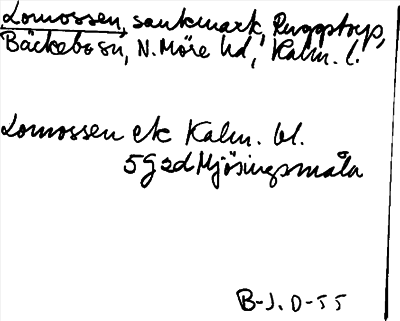 Lomossen, sankmark, Ruggstorp,
Bäckebo sn, N. Möre hd, Kalm. l.
Lomossen ek Kalm. bl.
5G 2d Mjösingsmåla
B-J. O-55